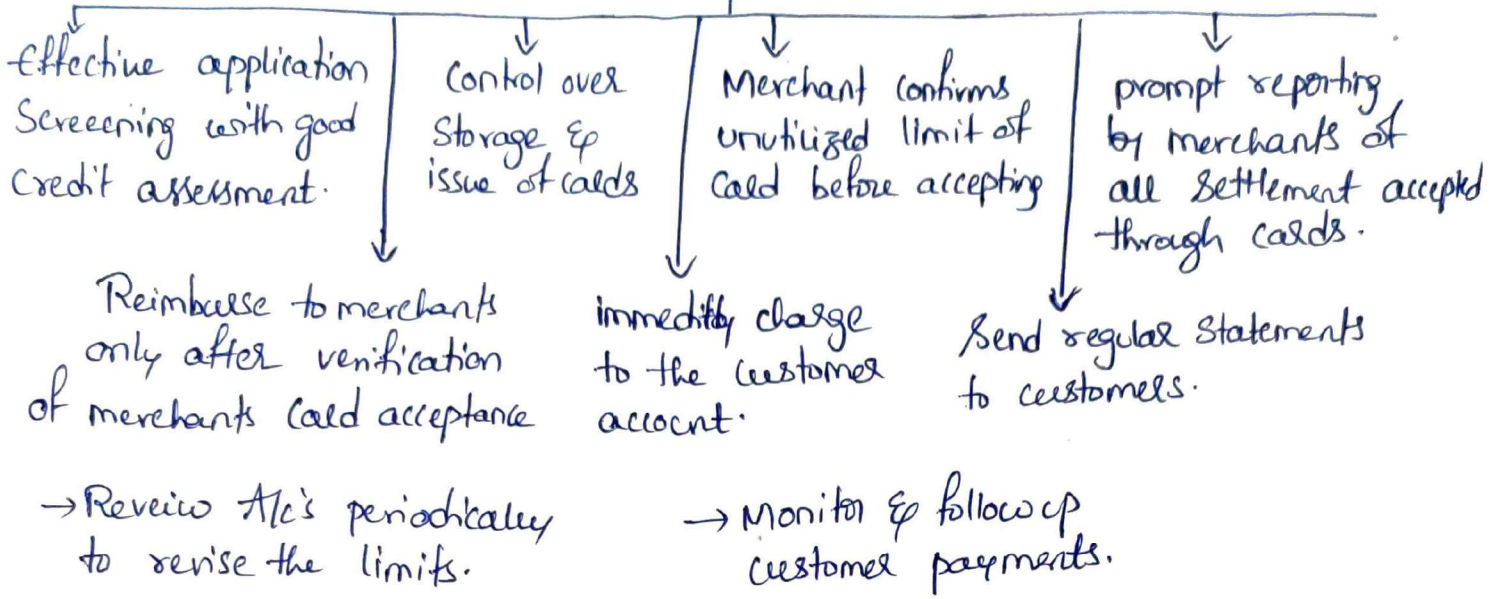 Effective application
Screeening with good
Credit assessment.
Control over
Storage &
issue of cards
Merchant Confirms
unutilized limit of
Card before accepting
prompt reporting
by merchants of
all settlement accepted
through cards.
Reimburse to merchants
only after verification
of merchants Card acceptance
immeditly charge
to the customer
account.
Send regular Statements
to customers.
→ Reveiw A/c's periodically
to revise the limits.
→ Monitor & follow up
customer payments.